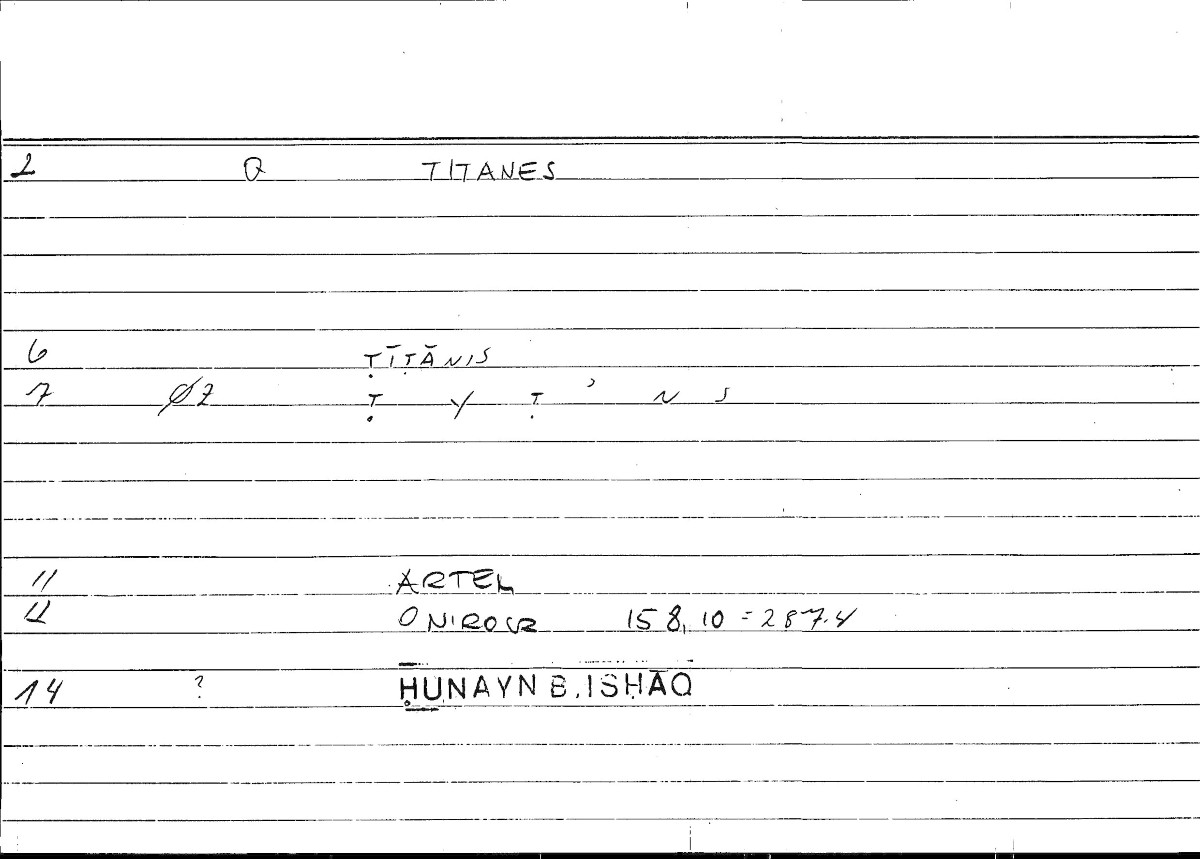 2 Q TITANES
6 ṬĪṬĀNIS
7 Ø2 Ṭ Y Ṭ ʾ N S
11 ARTEL
12 ONIROCR 158,10 = 287.4
14 ? ḤUNAYN B. ISḤĀQ